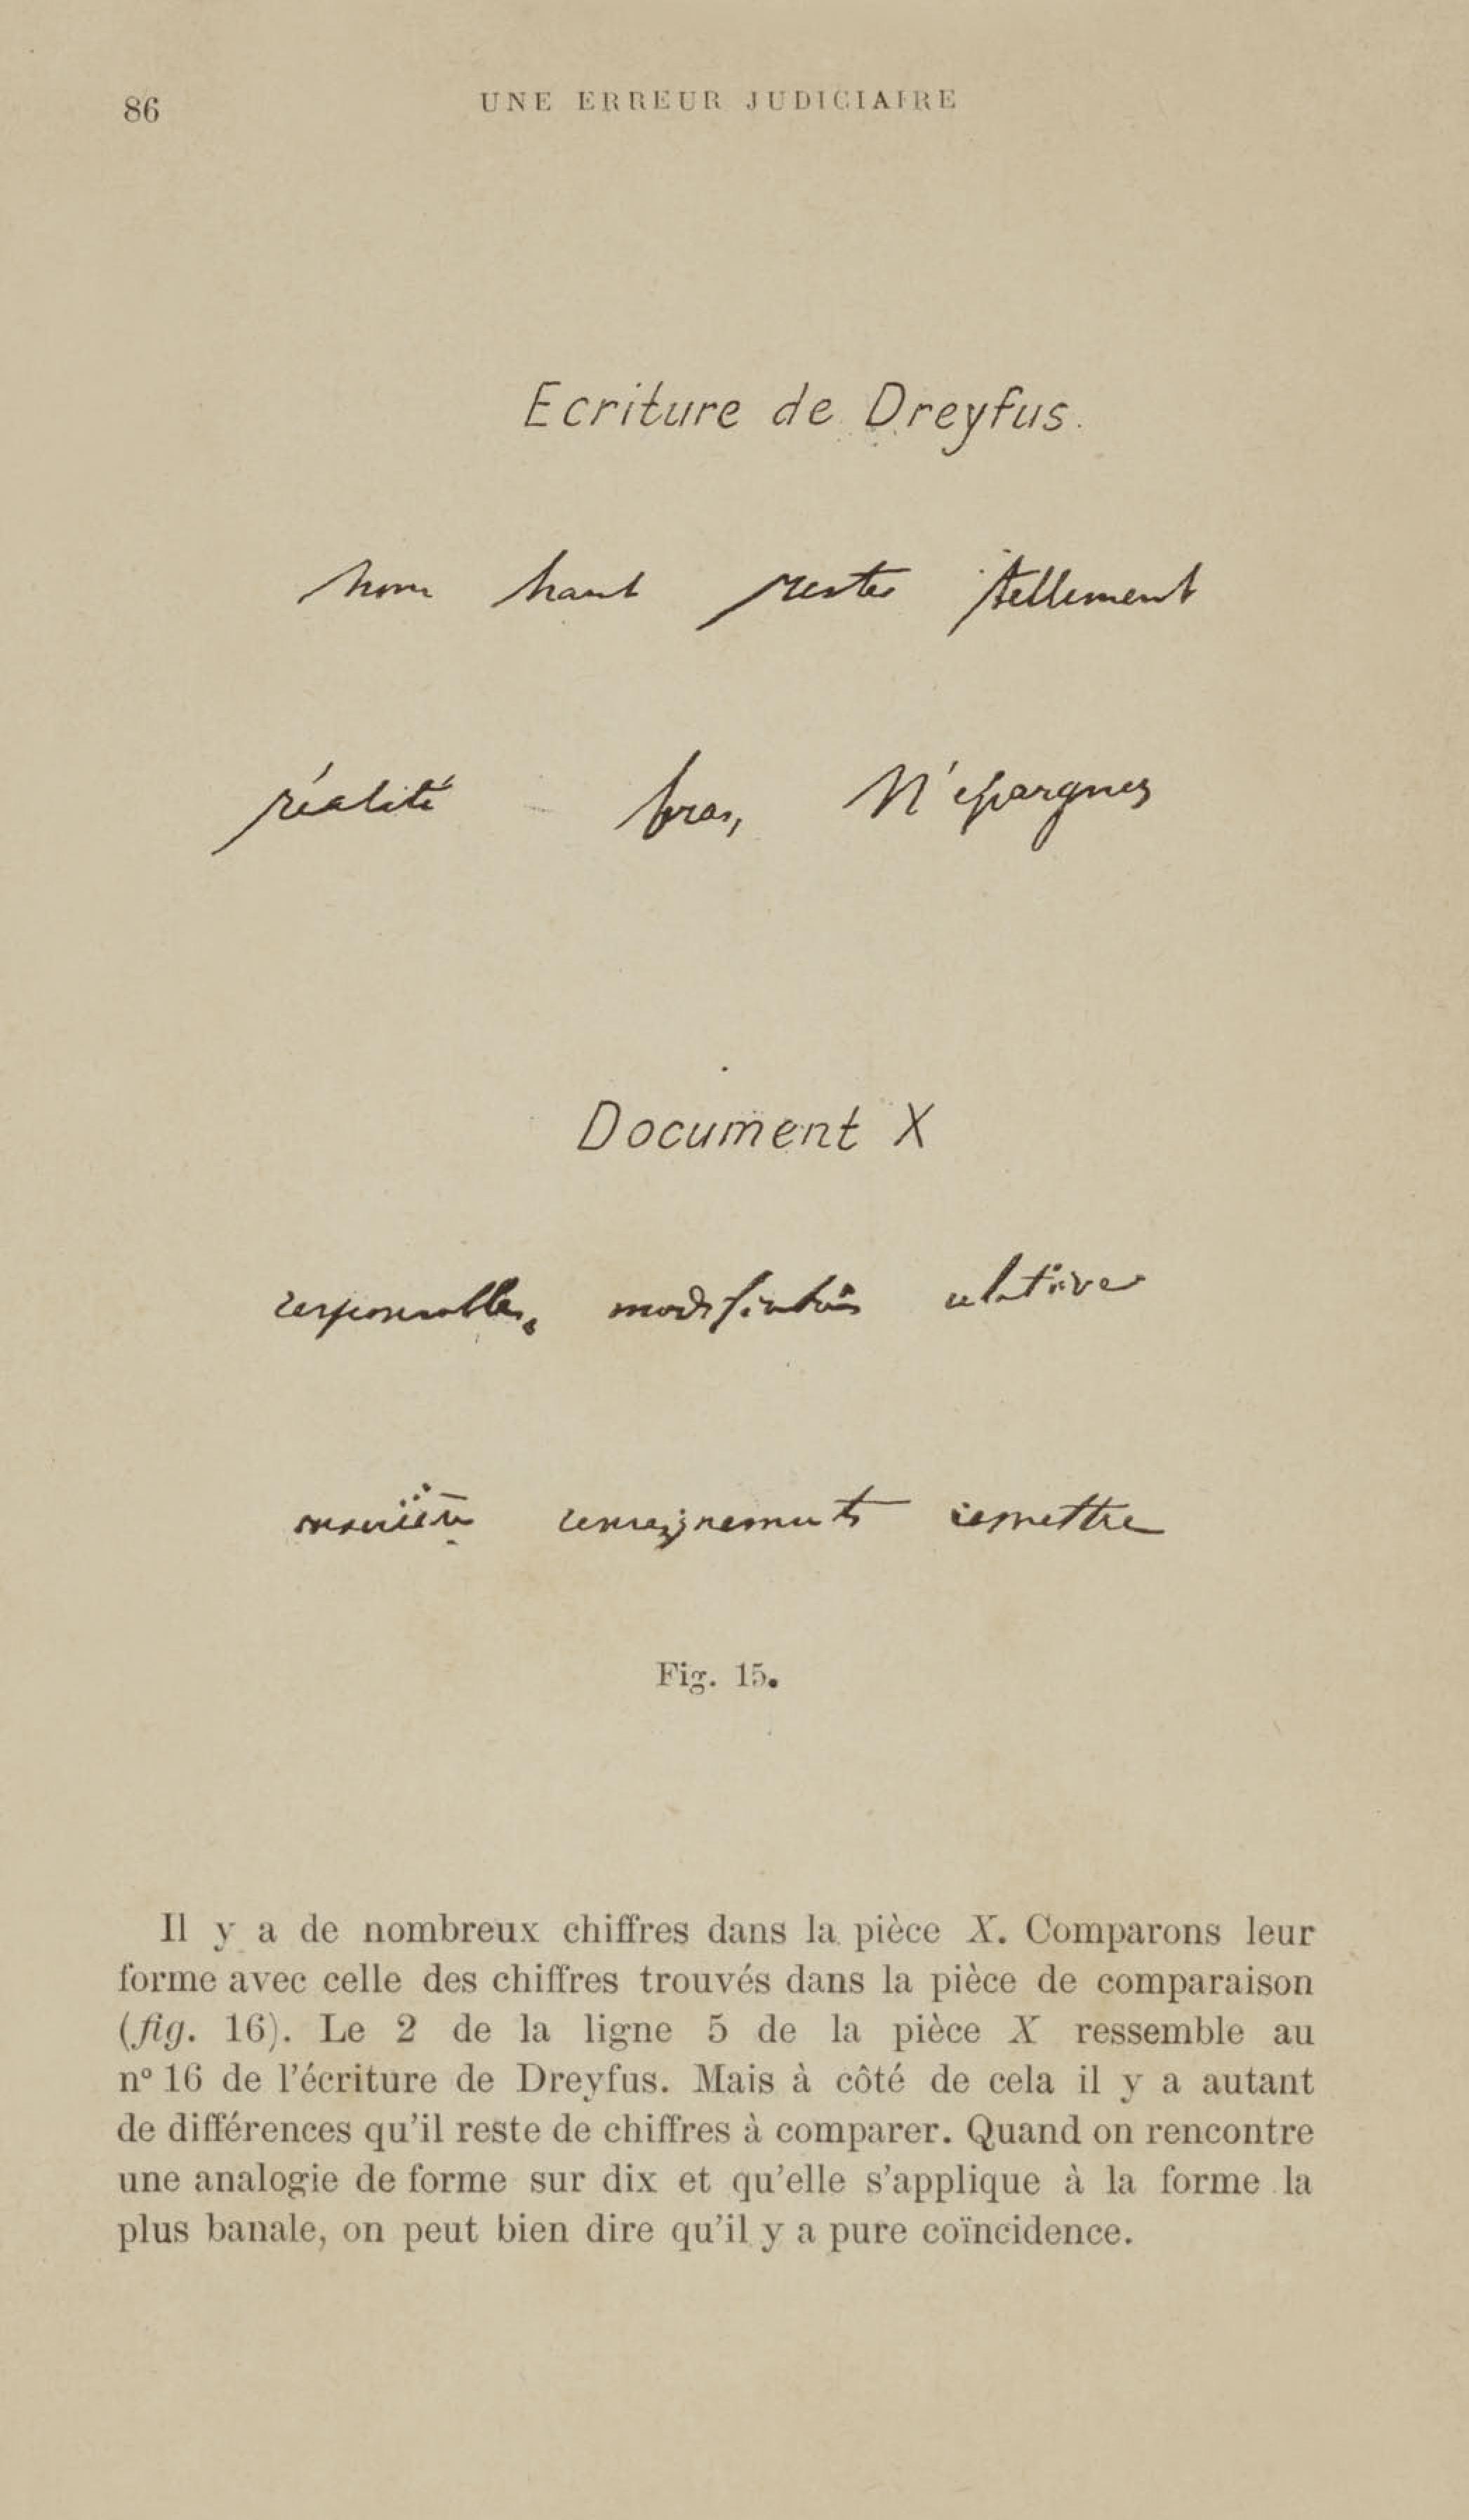 86
UNE ERREUR JUDICIAIRE
Ecriture de Dreyfus.
nom haut reste tellement
réalité bras, N'épargnez
Document X
responsable, modifications relatives
manière renseignements remettre
Fig. 15.
Il y a de nombreux chiffres dans la pièce X. Comparons leur
forme avec celle des chiffres trouvés dans la pièce de comparaison
(fig. 16). Le 2 de la ligne 5 de la pièce X ressemble au
n° 16 de l'écriture de Dreyfus. Mais à côté de cela il y a autant
de différences qu'il reste de chiffres à comparer. Quand on rencontre
une analogie de forme sur dix et qu'elle s'applique à la forme la
plus banale, on peut bien dire qu'il y a pure coïncidence.